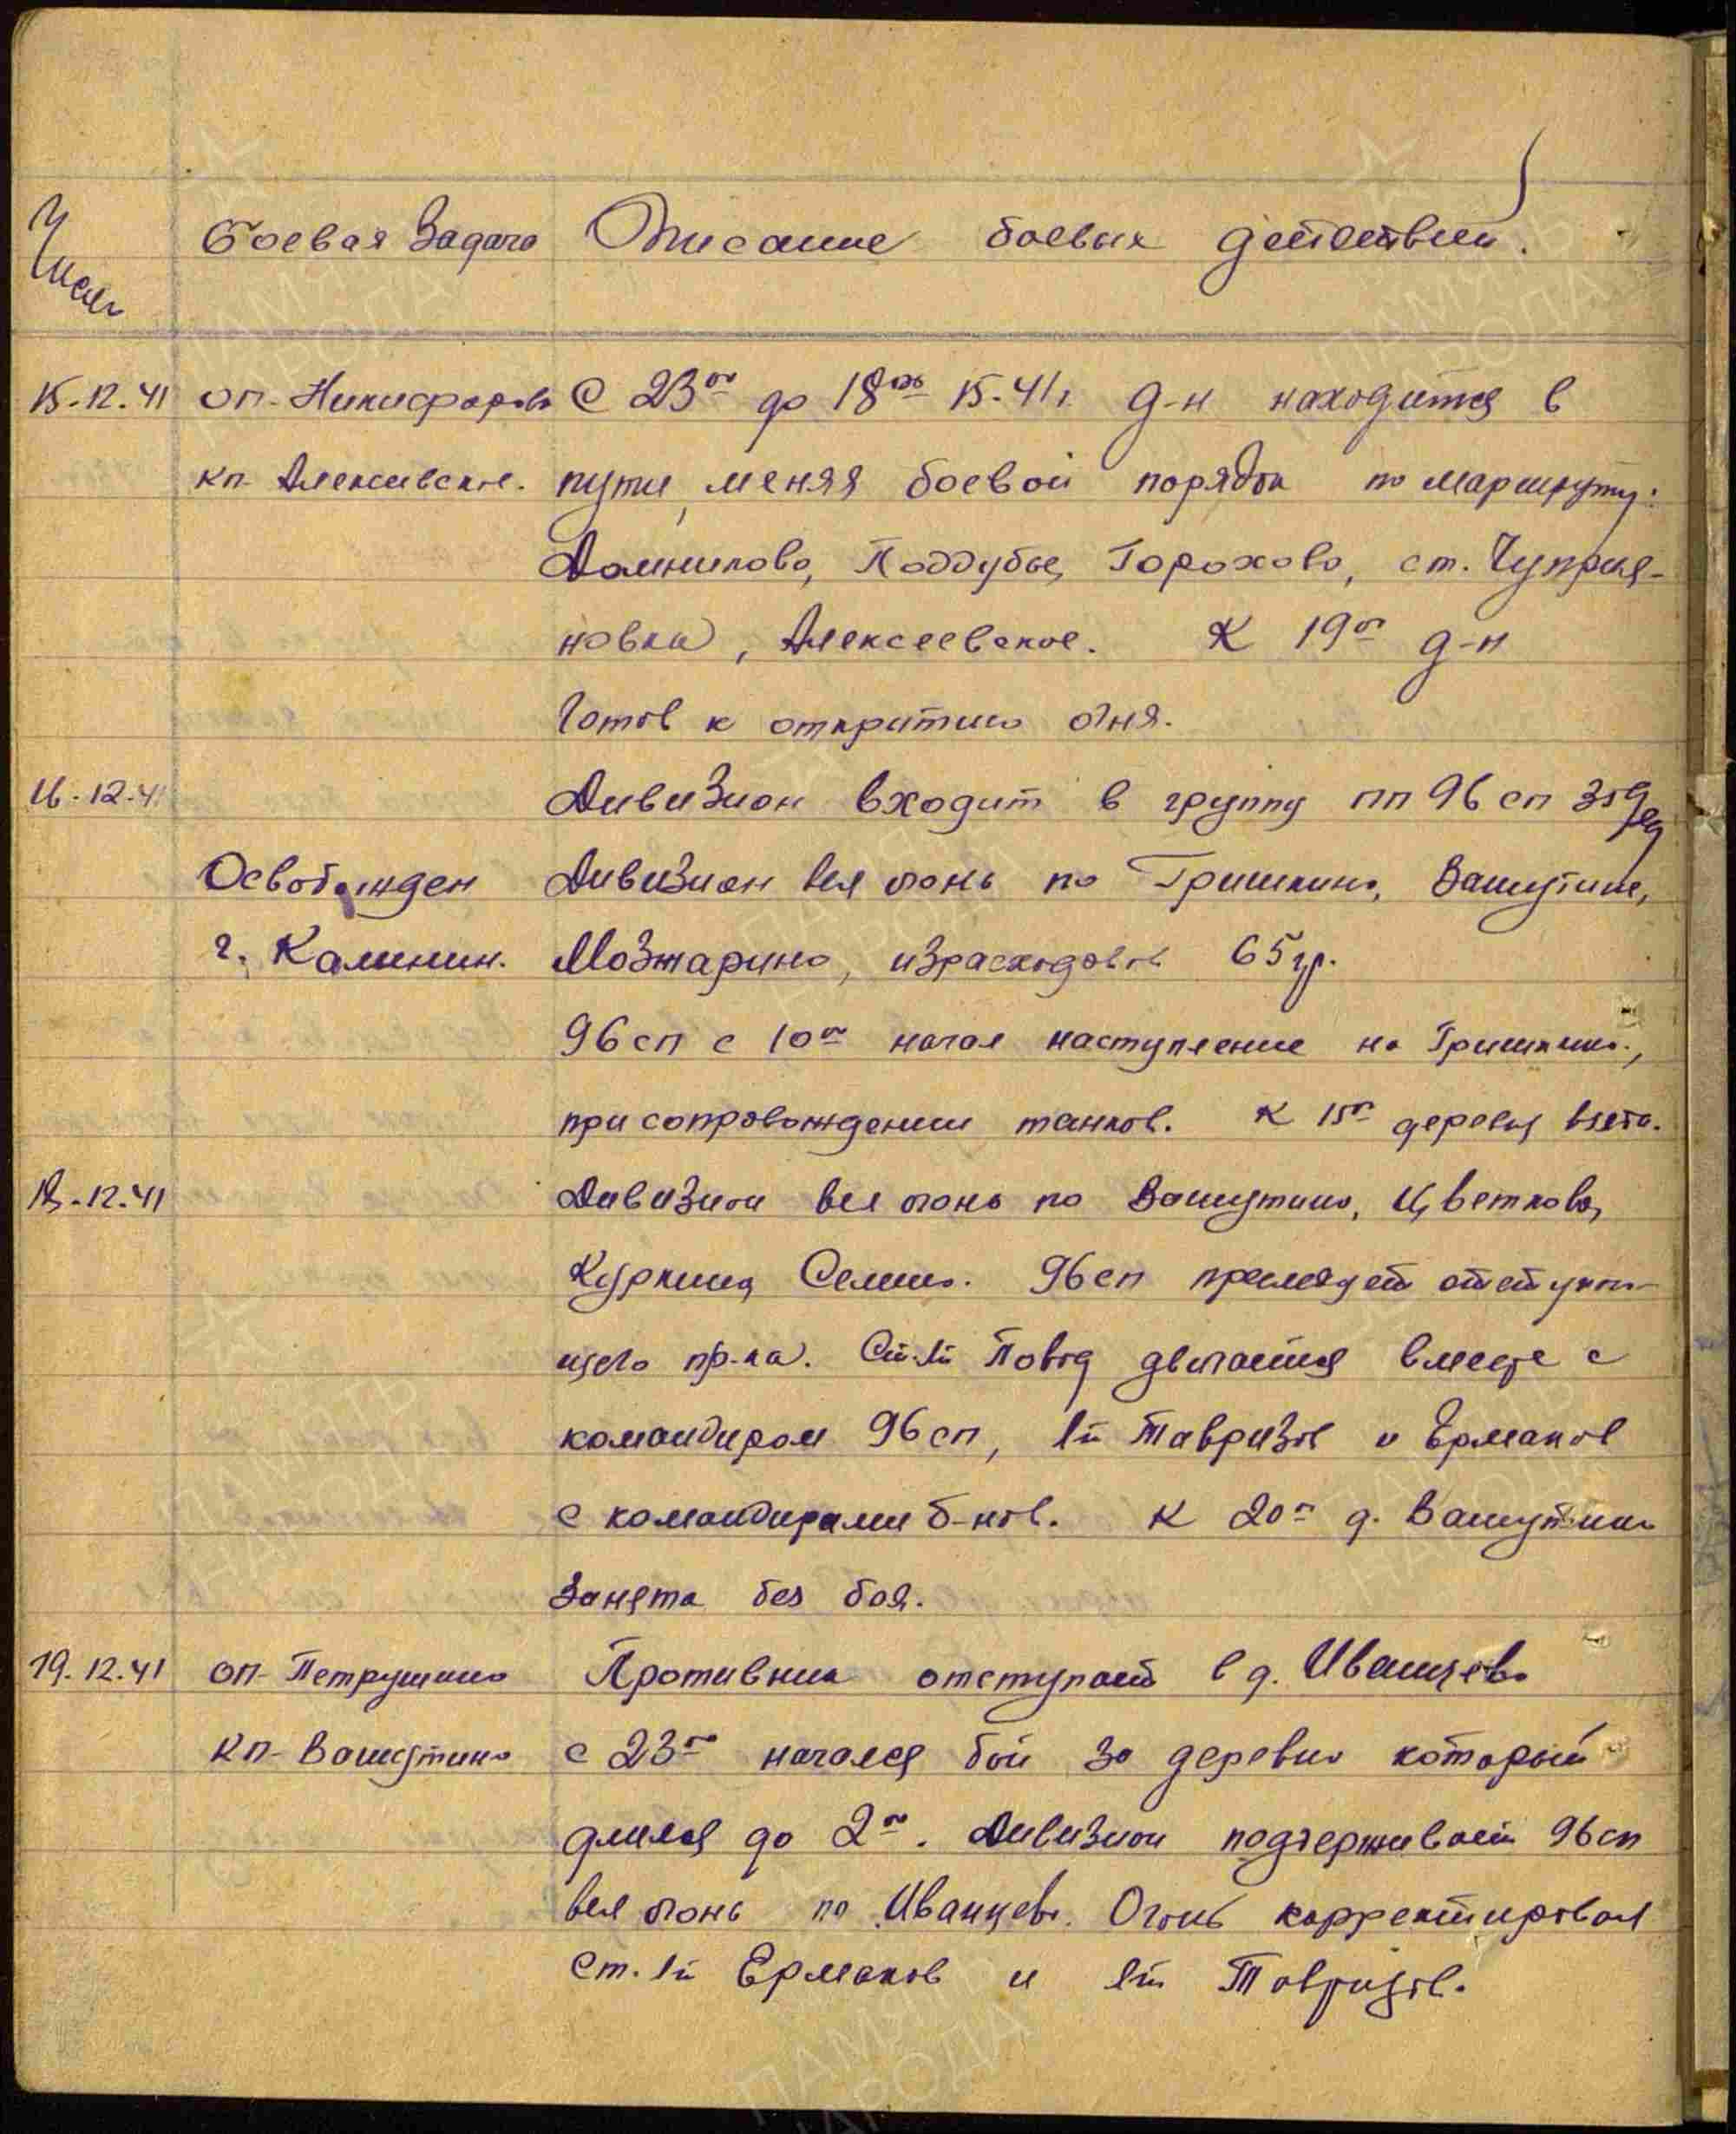 Числа
Боевая Задача Описание боевых действий.
15.12.41 оп-Никифорово С 23 00 до 18 00 15.41г. д-н находится в
кп-Алексевское. пути, меняя боевой порядок по маршруту:
Домниково, Поддубье, Горохово, ст. Чуприя-
новка, Алексеевское. К 19 00 д-н
готов к открытию огня.
16.12.41 Дивизион входит в группу пп 96 сп
Освобожден Дивизион вел огонь по Гришкино, Вашутино,
г. Калинин. Мозжарино, израсходовав 65 гр.
96 сп с 10 00 начал наступление на Гришкино,
при сопровождении танков. К 15 00 деревня взята.
12.41 Дивизион вел огонь по Вашутино, Цветково,
Куркино, Семино. 96 сп преследует отступаю-
щего пр-ка. Ст. лт двигается вместе с
командиром 96 сп, лт Тавризов и Ермаков
с командирами б-нов. К 20 00 д. Вашутино
занята без боя.
19.12.41 оп-Петрушино Противник отступает в д. Иванцево
кп-Вашутино с 23 00 начался бой за деревню который
длился до 2 00. Дивизион поддерживает 96 сп
вел огонь по Иванцево. Огонь корректировал
ст. лт Ермаков и лт Тавризов.